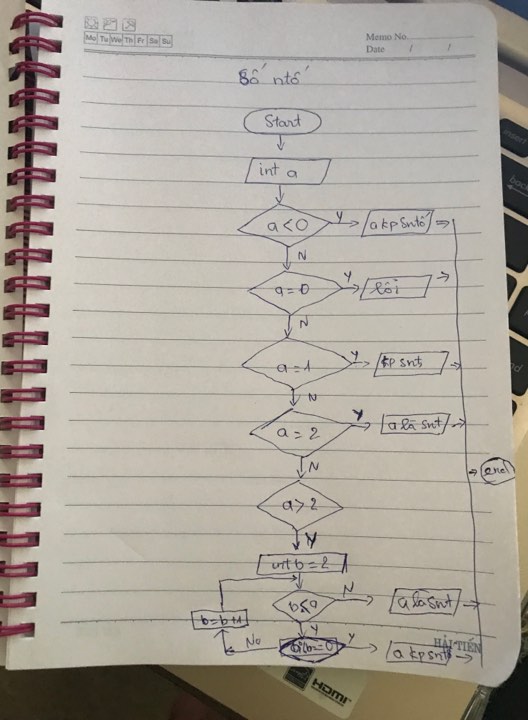 Mo Tu We Th Fr Sa Su
Memo No.
Date / /
Số ntố
Start
int a
a<0 Y a kp sntố
N
a=0 Y lỗi
N
a=1 Y kp snt
N
a=2 Y a là snt
N
end
a>2
Y
int b=2
N a là snt
b=b+1
Y
No Y a kp snt
HẢI TIẾN
HDMI